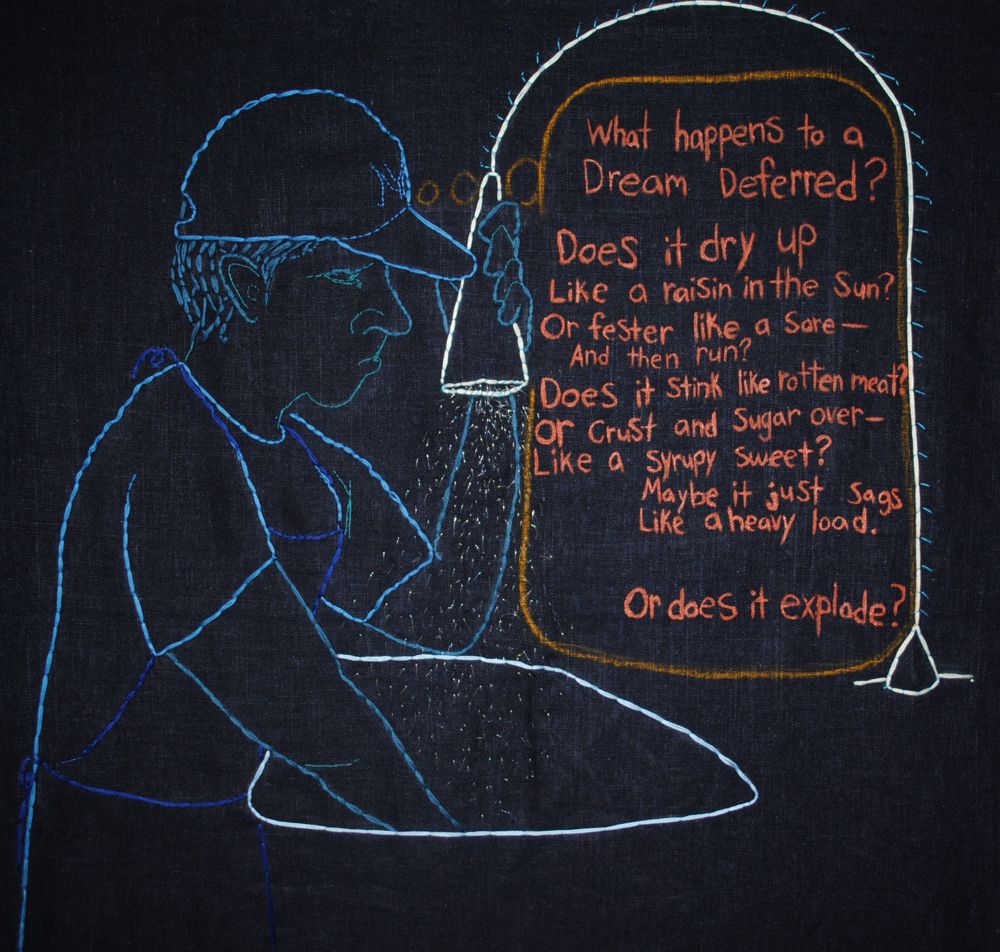 N
What happens to a
Dream Deferred?
Does it dry up
Like a raisin in the Sun?
Or fester like a Sore—
And then run?
Does it Stink like rotten meat?
Or Crust and Sugar over—
Like a Syrupy Sweet?
Maybe it just Sags
Like a heavy load.
Or does it explode?